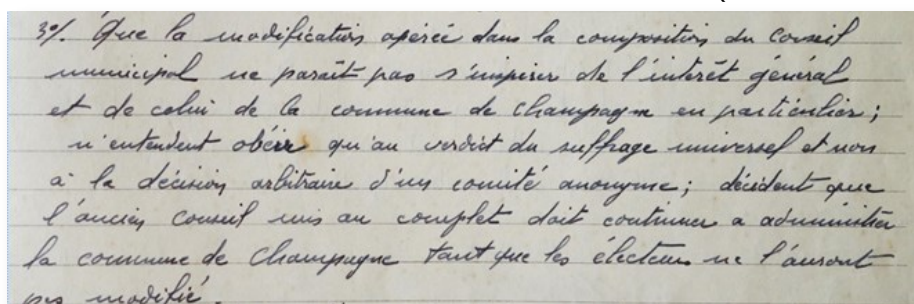 3°/. Que la modification opérée dans la composition du Conseil
municipal ne paraît pas s'inspirer de l'intérêt général
et de celui de la commune de Champagne en particulier ;
n'entendent obéir qu'au verdict du suffrage universel et non
à la décision arbitraire d'un comité anonyme ; décident que
l'ancien Conseil mis au complet doit continuer a administrer
la commune de Champagne tant que les électeurs ne l'auront
pas modifié.